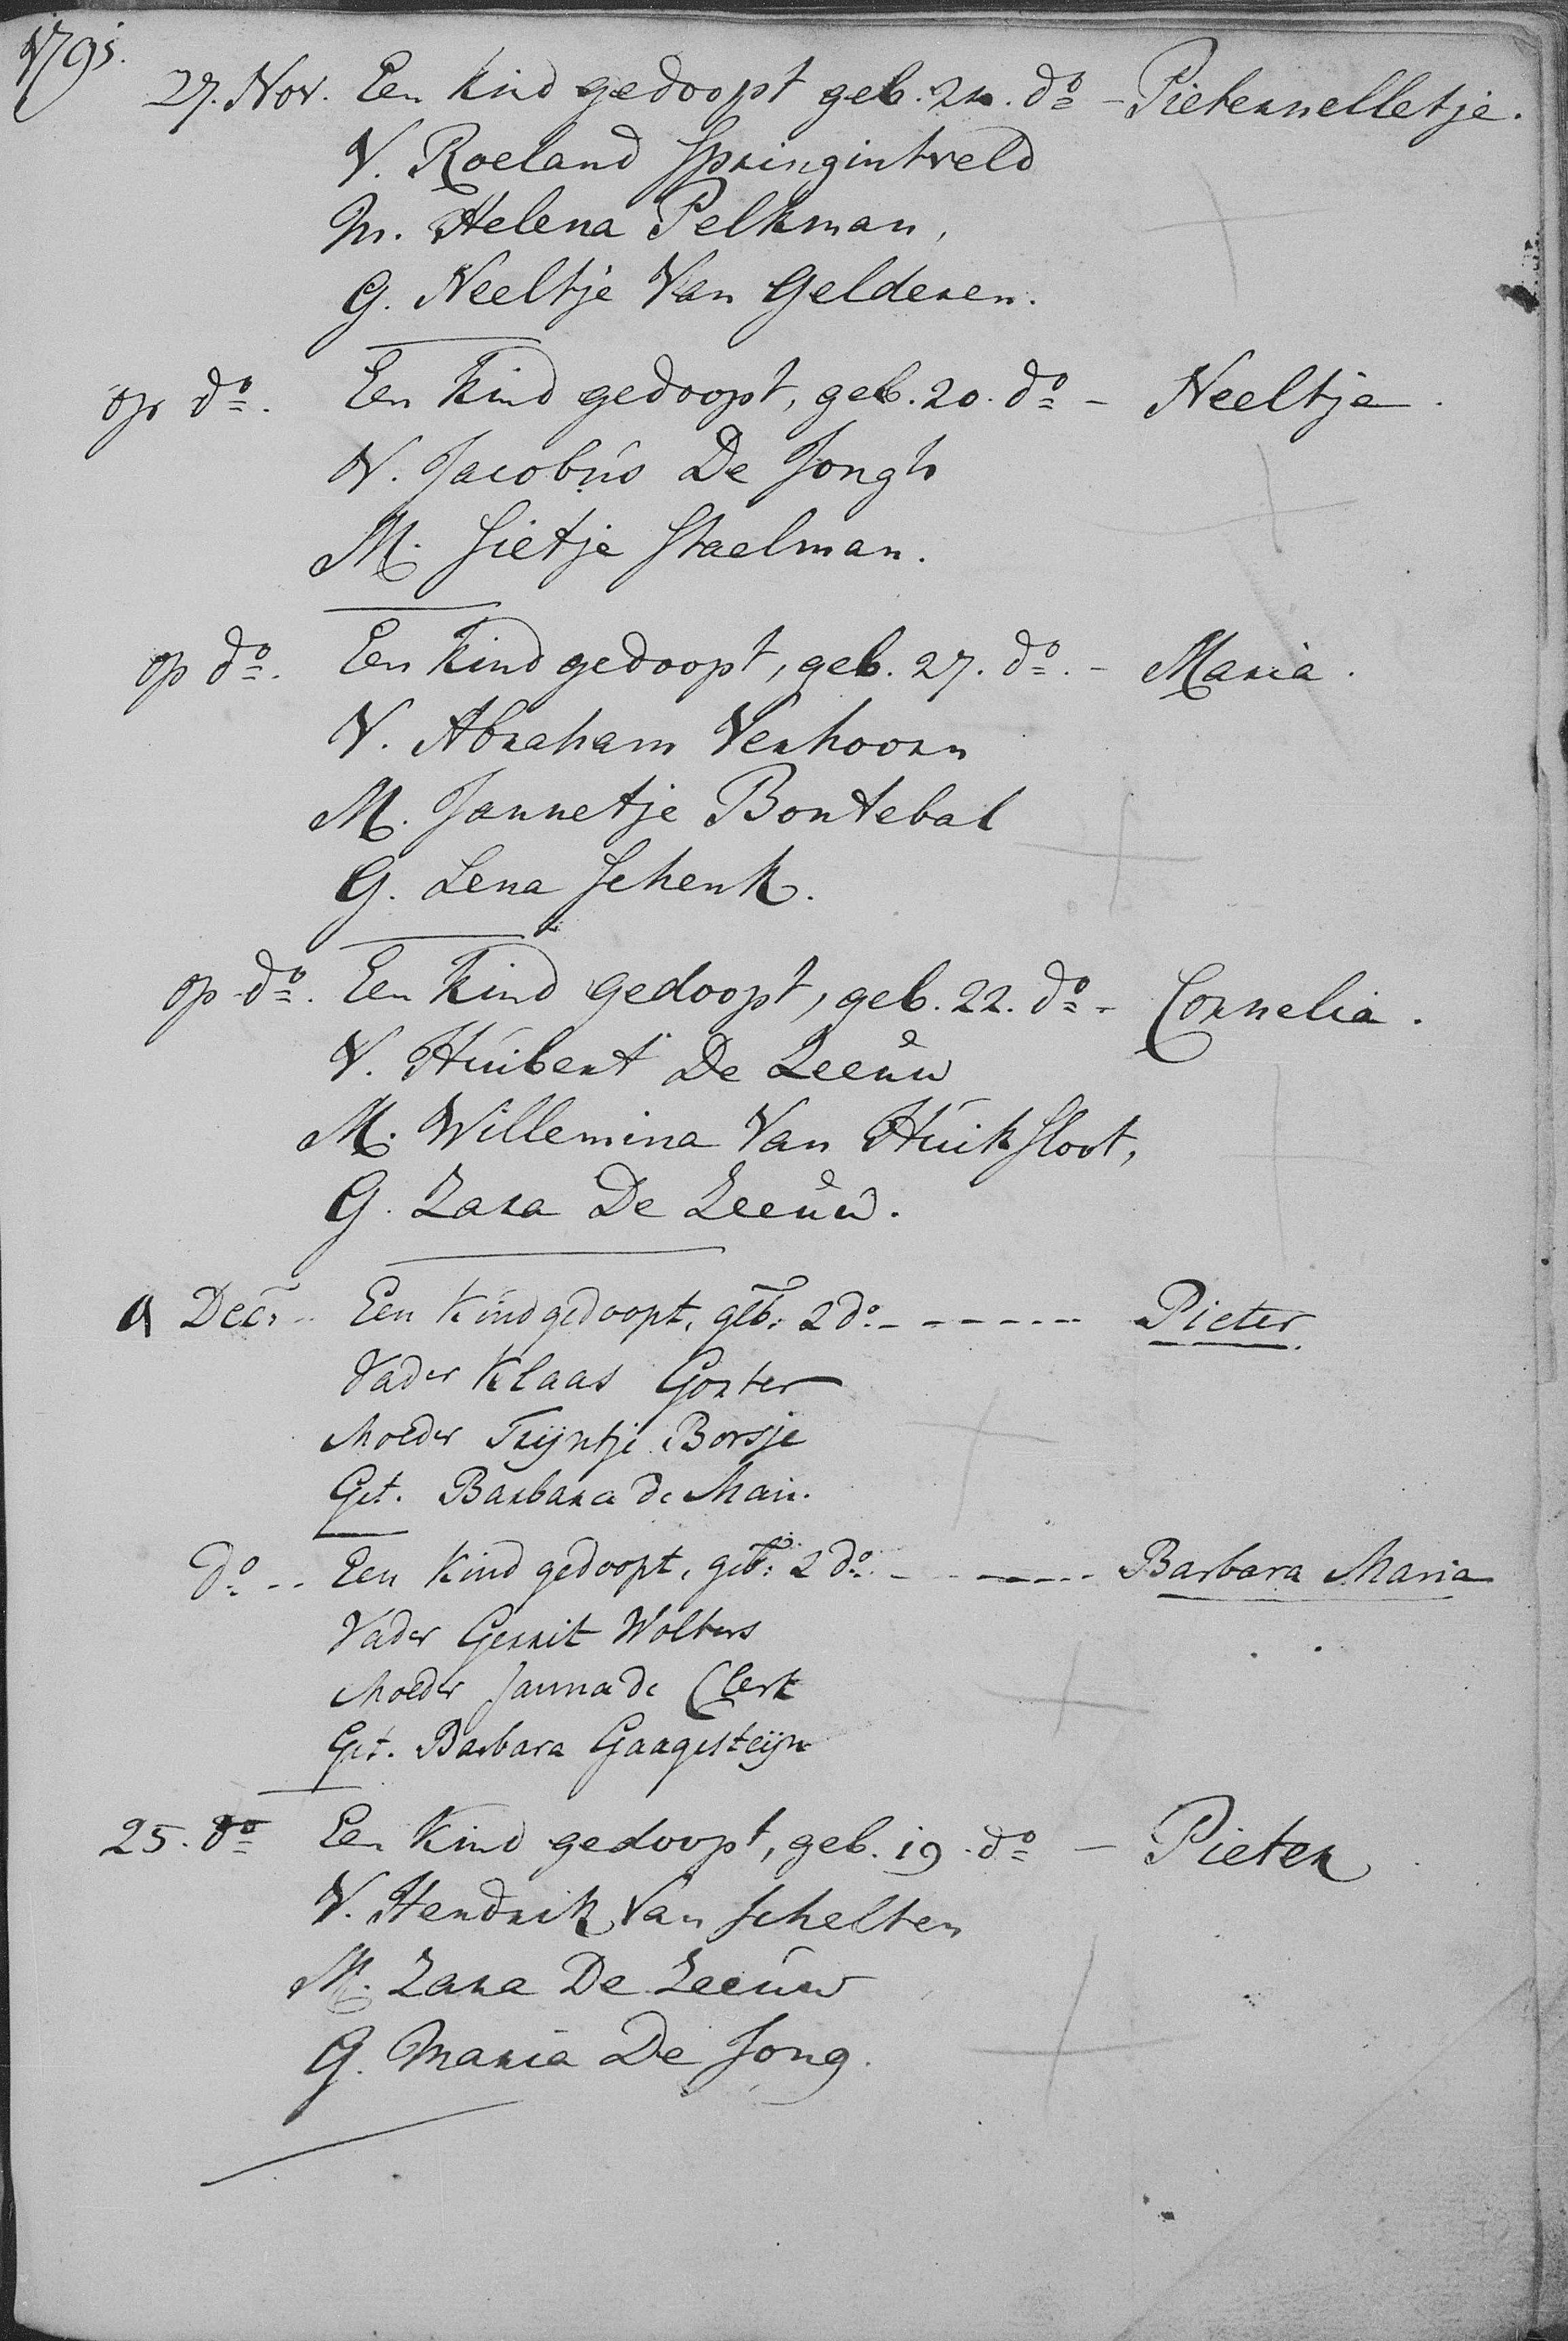 1791.
27. Nov. Een kind gedoopt geb. 24. do - Pieternelletje.
V. Roeland Springintveld
M. Helena Pelkman,
G. Neeltje Van Gelderen.
op do. Een kind gedoopt, geb. 20. do - Neeltje.
V. Jacobus De Jongh
M. Sietje Staelman.
op do. Een kind gedoopt, geb. 27. do. - Maria.
V. Abraham Verhoorn
M. Jannetje Bontebal
G. Lena Schenk.
op do. Een kind gedoopt, geb. 22. do - Cornelia.
V. Huibert De Leeuw
M. Willemina Van Huiksloot,
G. Zara De Leeuw.
Decr Een Kind gedoopt, geb: 2 do. - - - - - - - Pieter.
Vader Klaas Gorter
Moeder Trijntje Borsje
Get. Barbara de Man.
do. -- Een Kind gedoopt, geb: 2 do. - - - - - - Barbara Maria
Vader Gerrit Wolters
Moeder Janna de Clerk
Get. Barbara Gaagesteijn
25. do Een Kind gedoopt, geb. 19. do - Pieter
V. Hendrik Van Schelten
M. Zara De Leeuw
G. Maria De Jong.